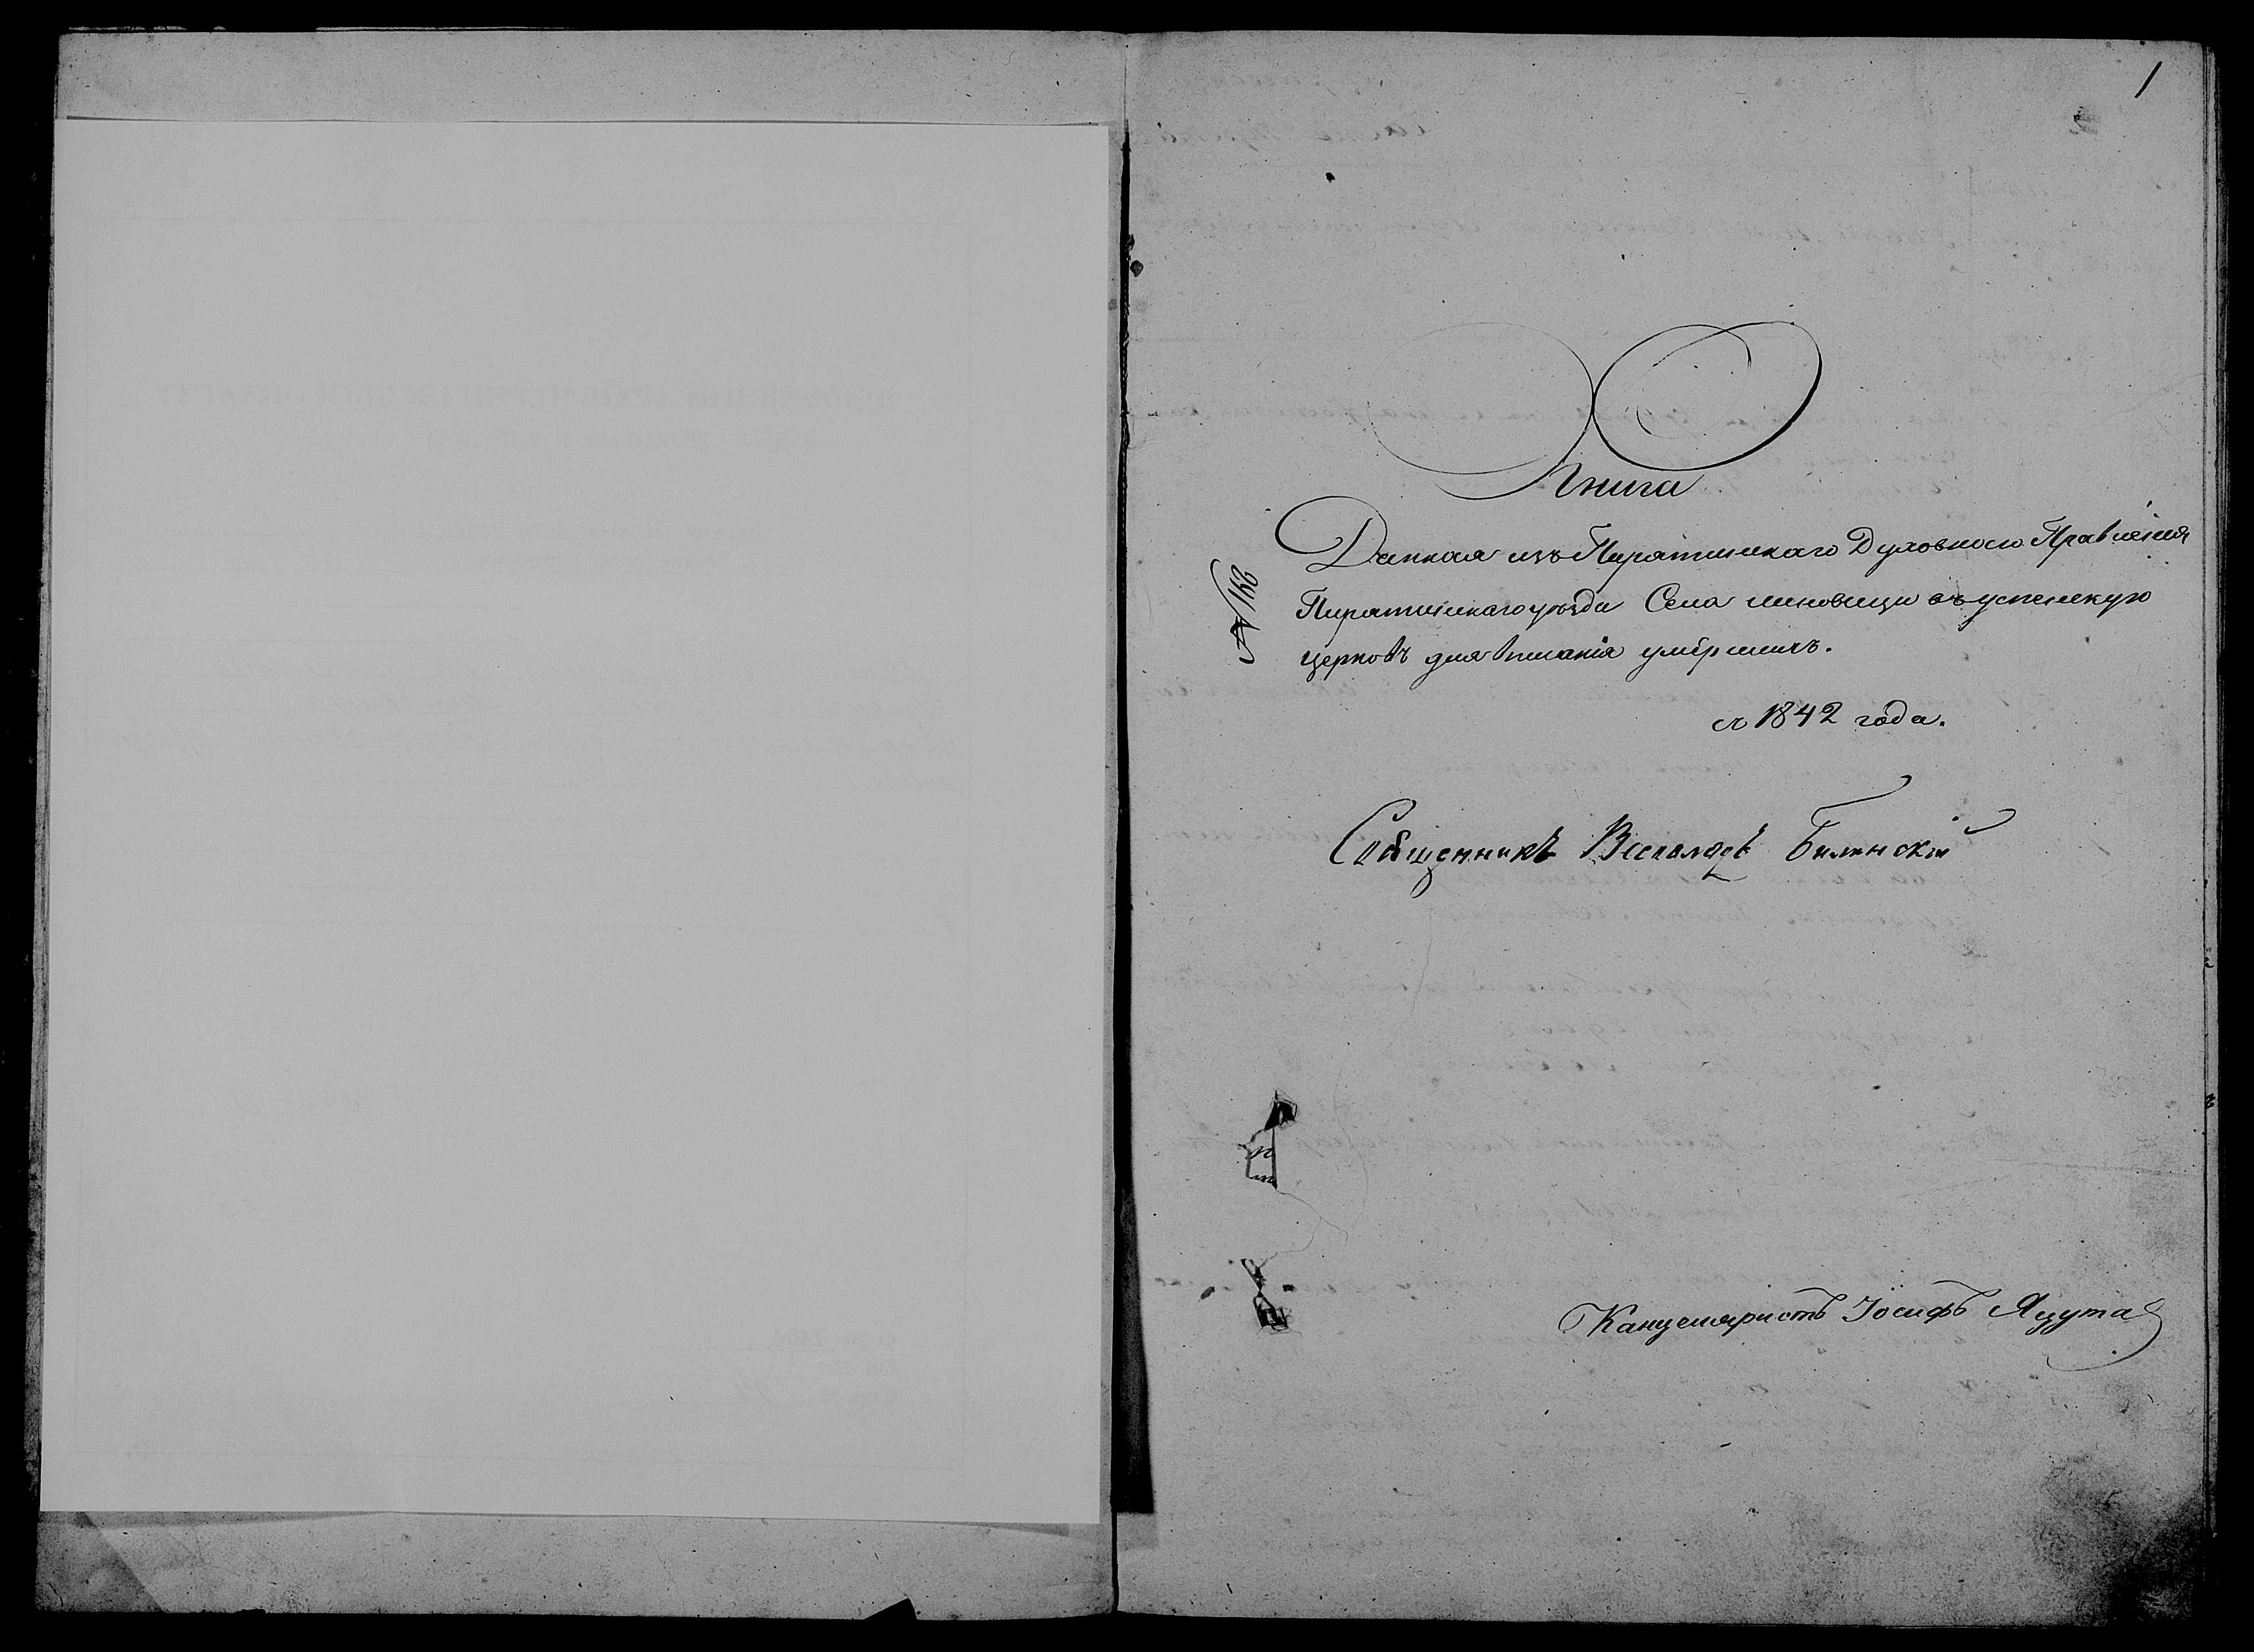 1
Книга
Данная изъ Пирятинскаго Духовного Правленія
Пирятинскаго уѣзда Села линовици въ успенскую
церковъ для вписанія умершихъ.
съ 1842 года.
№ 152
Священникъ Билинскій
Канцеляристъ Іосифъ Яцута